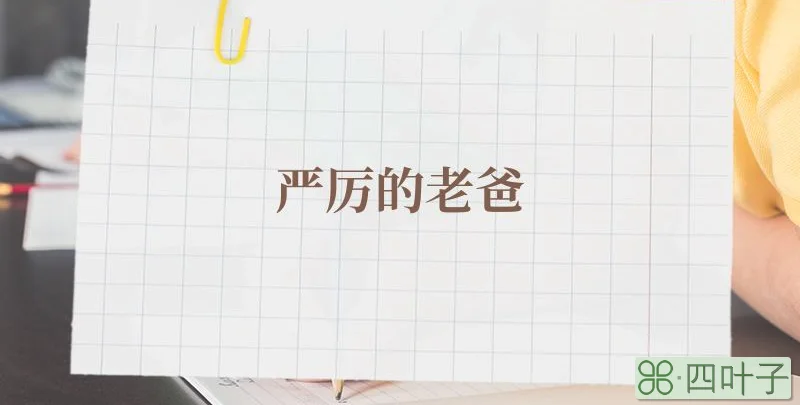 严厉的老爸
四叶子